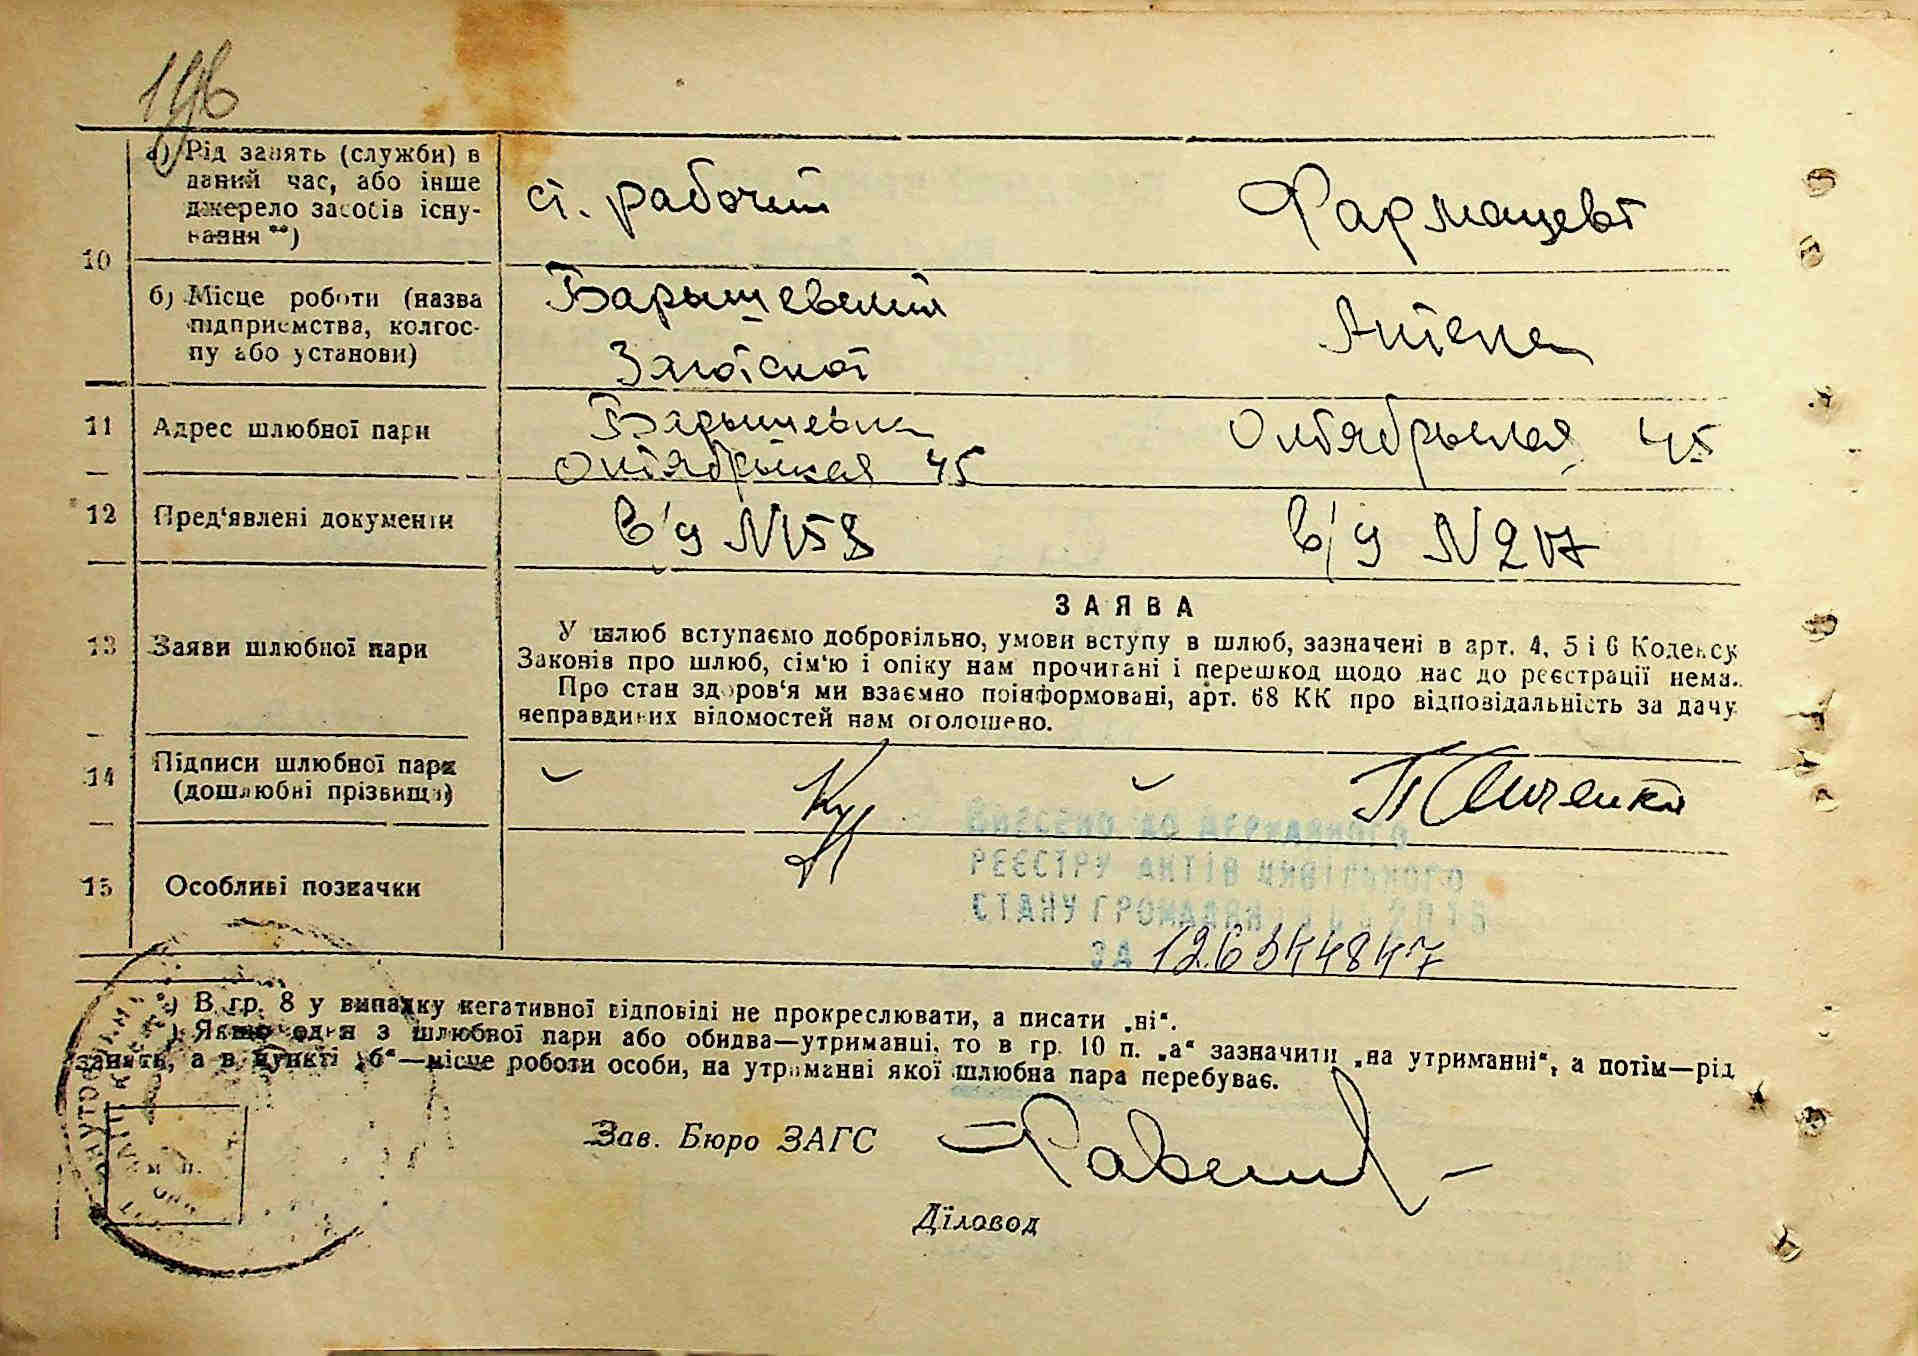 196
а) Рід занять (служби) в
даний час, або інше
джерело засобів існу-
вання **)
ст. рабочий
Фармацевт
10
б) Місце роботи (назва
підприємства, колгос-
пу або установи)
Барышевский
Заготскот
Аптека
11
Адрес шлюбної пари
Барышевка
Октябрьская 45
Октябрьская 45
12
Пред'явлені документи
в/у №158
в/у №217
13
Заяви шлюбної пари
ЗАЯВА
У шлюб вступаємо добровільно, умови вступу в шлюб, зазначені в арт. 4, 5 і 6 Кодексу
Законів про шлюб, сім'ю і опіку нам прочитані і перешкод щодо нас до реєстрації нема.
Про стан здоров'я ми взаємно поінформовані, арт. 68 КК про відповідальність за дачу
неправдивих відомостей нам оголошено.
14
Підписи шлюбної пари
(дошлюбні прізвища)
15
Особливі позначки
ВНЕСЕНО ДО ДЕРЖАВНОГО
РЕЄСТРУ АКТІВ ЦИВІЛЬНОГО
СТАНУ ГРОМАДЯН
ЗА
*) В гр. 8 у випадку негативної відповіді не прокреслювати, а писати „ні“.
Якщо один з шлюбної пари або обидва—утриманці, то в гр. 10 п. „а“ зазначити „на утриманні“, а потім—рід
занять, а в пункті „б“—місце роботи особи, на утриманні якої шлюбна пара перебуває.
Зав. Бюро ЗАГС
м. п.
Діловод